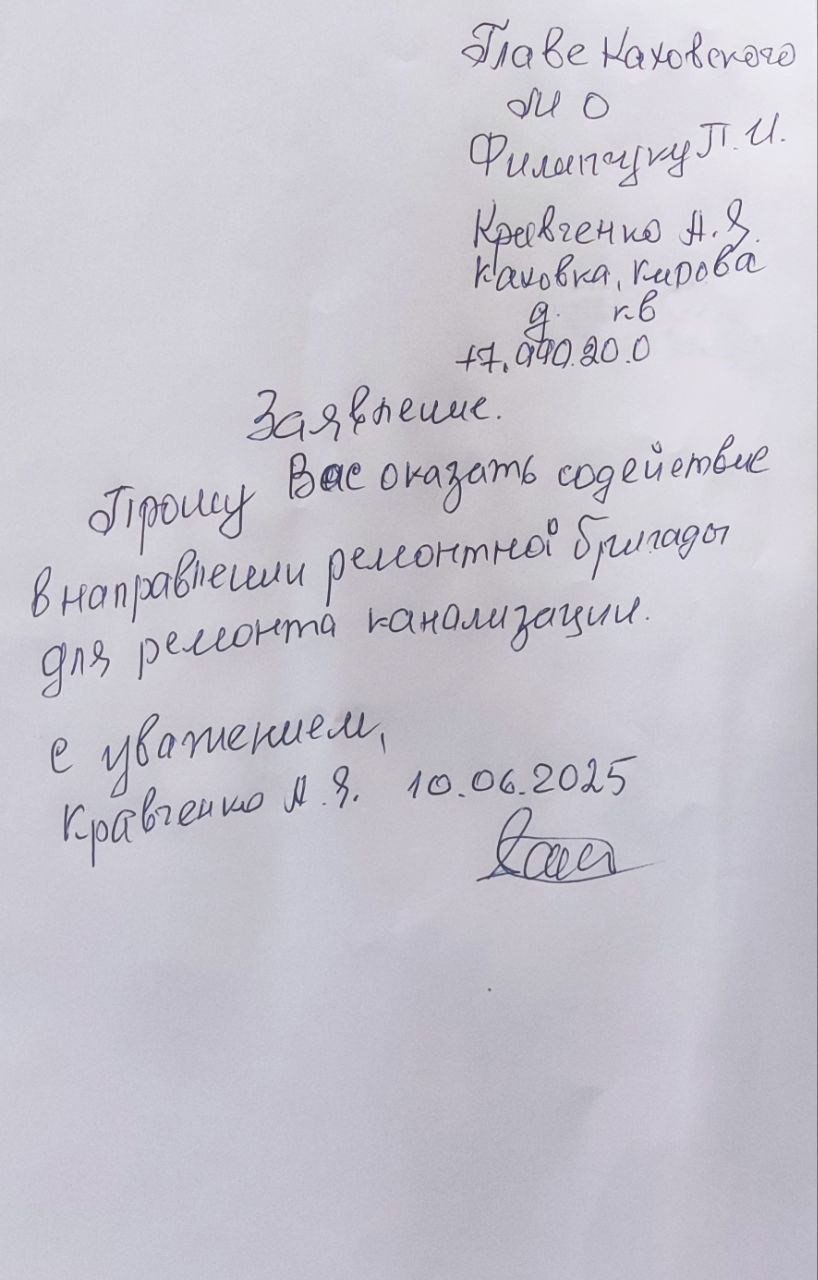 Главе Каховского
МО
Филипчуку П.И.
Кравченко А.Я.
Каховка, Кирова
д. кв
+7.990.20.0
Заявление.
Прошу Вас оказать содействие
в направлении ремонтной бригады
для ремонта канализации.
с уважением,
Кравченко А.Я. 10.06.2025